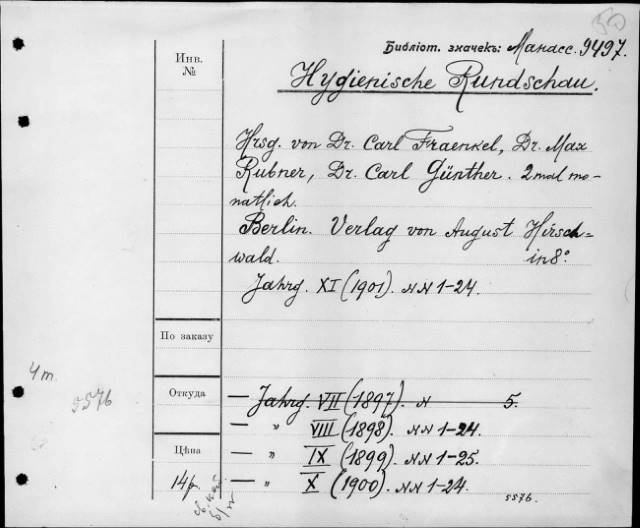 50
Библіот. значекъ: Манасс. 9497.
Инв.
№
Hygienische Rundschau.
Hrsg. von Dr. Carl Fraenkel, Dr. Max
Rubner, Dr. Carl Günther. 2 mal mo-
natlich.
Berlin. Verlag von August Hirsch=
wald. in 8°.
Jahrg. XI (1901). NN 1-24.
По заказу
4 т.
5576
Откуда
— Jahrg. VII (1897). N 5.
— " VIII (1898). NN 1-24.
Цѣна
— " IX (1899). NN 1-25.
14р.
— " X (1900). NN 1-24.
5576.